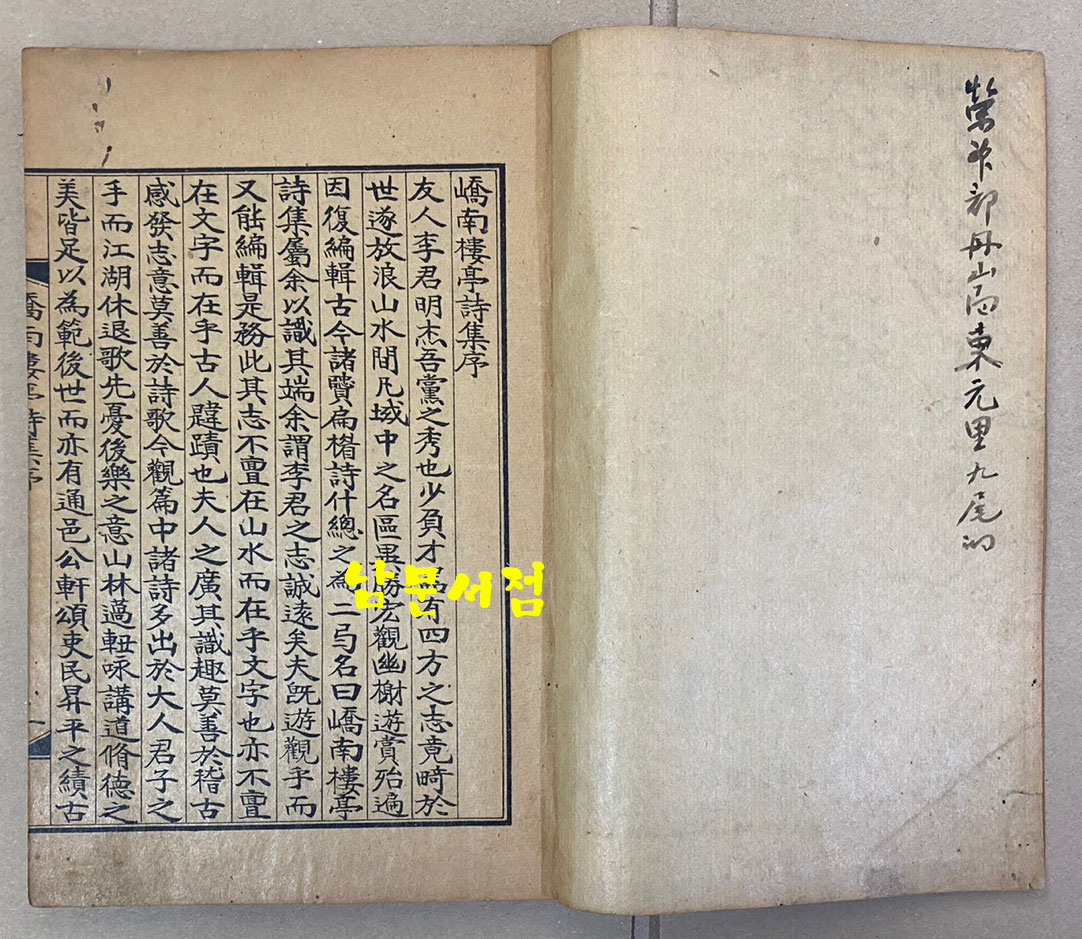 榮州部丹山面東元里九尾洞
嶠南樓亭詩集序
友人李君明杰吾黨之秀也少負才器有四方之志竟畸於
世遂放浪山水間凡域中之名區異勝宏觀幽榭遊賞殆遍
因復編輯古今諸賢扁楣詩什總之為二弓名曰嶠南樓亭
詩集屬余以識其端余謂李君之志誠遠矣夫旣遊觀乎而
又能編輯是務此其志不亶在山水而在乎文字也亦不亶
在文字而在乎古人韙蹟也夫人之廣其識趣莫善於稽古
感發志意莫善於詩歌今觀篇中諸詩多出於大人君子之
手而江湖休退歌先憂後樂之意山林薖軸咏講道脩德之
美皆足以為範後世而亦有通邑公軒頌吏民昇平之績古
嶠南樓亭詩集序
一
남문서점